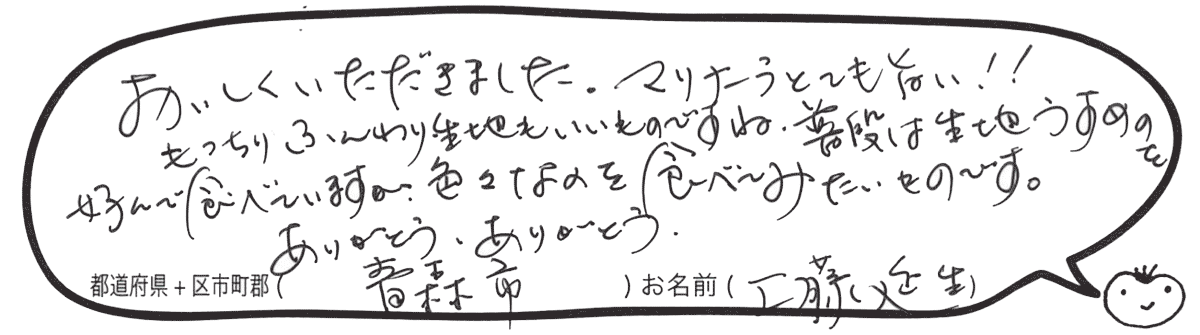 おいしくいただきました。マリナーラとても旨い!!
もっちりふんわり生地もいいものですね.普段は生地うすめのを
好んで食べていますが、色々なのを食べてみたいものです。
ありがとう、ありがとう.
都道府県+区市町郡(青森市)お名前(工藤 生)